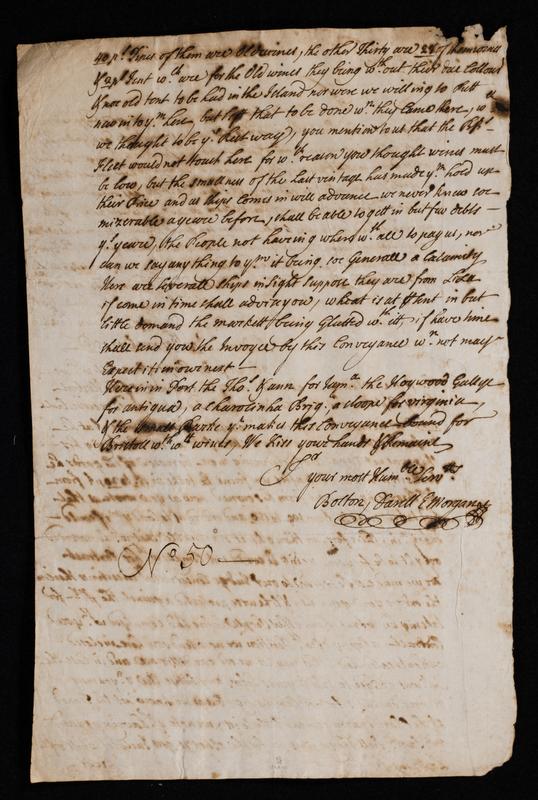 40 pˢ Pines of them are Old wines, the other Thirty are 28 of them
& 2 pˢ Tent wᶜʰ are for the Old wines they being wᵗʰout their due Collour
& no old tent to be had in the Island nor were we willing to putt
new into yᵐ here but left that to be done wⁿ they Came there, wᶜʰ
we thought to be yᵉ best way, you mention to us that the
Fleet would not touch here for wᶜʰ reason you thought wines must
be low, but the smallness of the last vintage has made yᵐ hold up
their Price and as ships comes in will advance we never knew soe
mizerable a yeare before, shall be able to gett in but few debts
yˢ yeare, the People not haveing where wᵗʰall to pay us, nor
can we say any thing to yᵐ it being soe Generall a Calamity
Here are severall ships in sight suppose they are from
if come in time shall advise you, wheat is at present in but
little demand the markett being Glutted wᵗʰ itt, if have time
shall send you the Invoyce by this Conveyance wⁿ not may
Expect itt in our next —
Here is in Port the Thoˢ & Ann for Jamᵃ the Heywood Galley
for antigua, a Charolinha Brigⁿ a sloope for virginia,
& the yᵗ makes this Conveyance bound for
Bristoll wᵗʰ wines, We Kiss your hands & Remaine
Sʳ
your most Humᵇˡᵉ Servᵗˢ
Bolton, Darell & Morgan
Nº 50 —